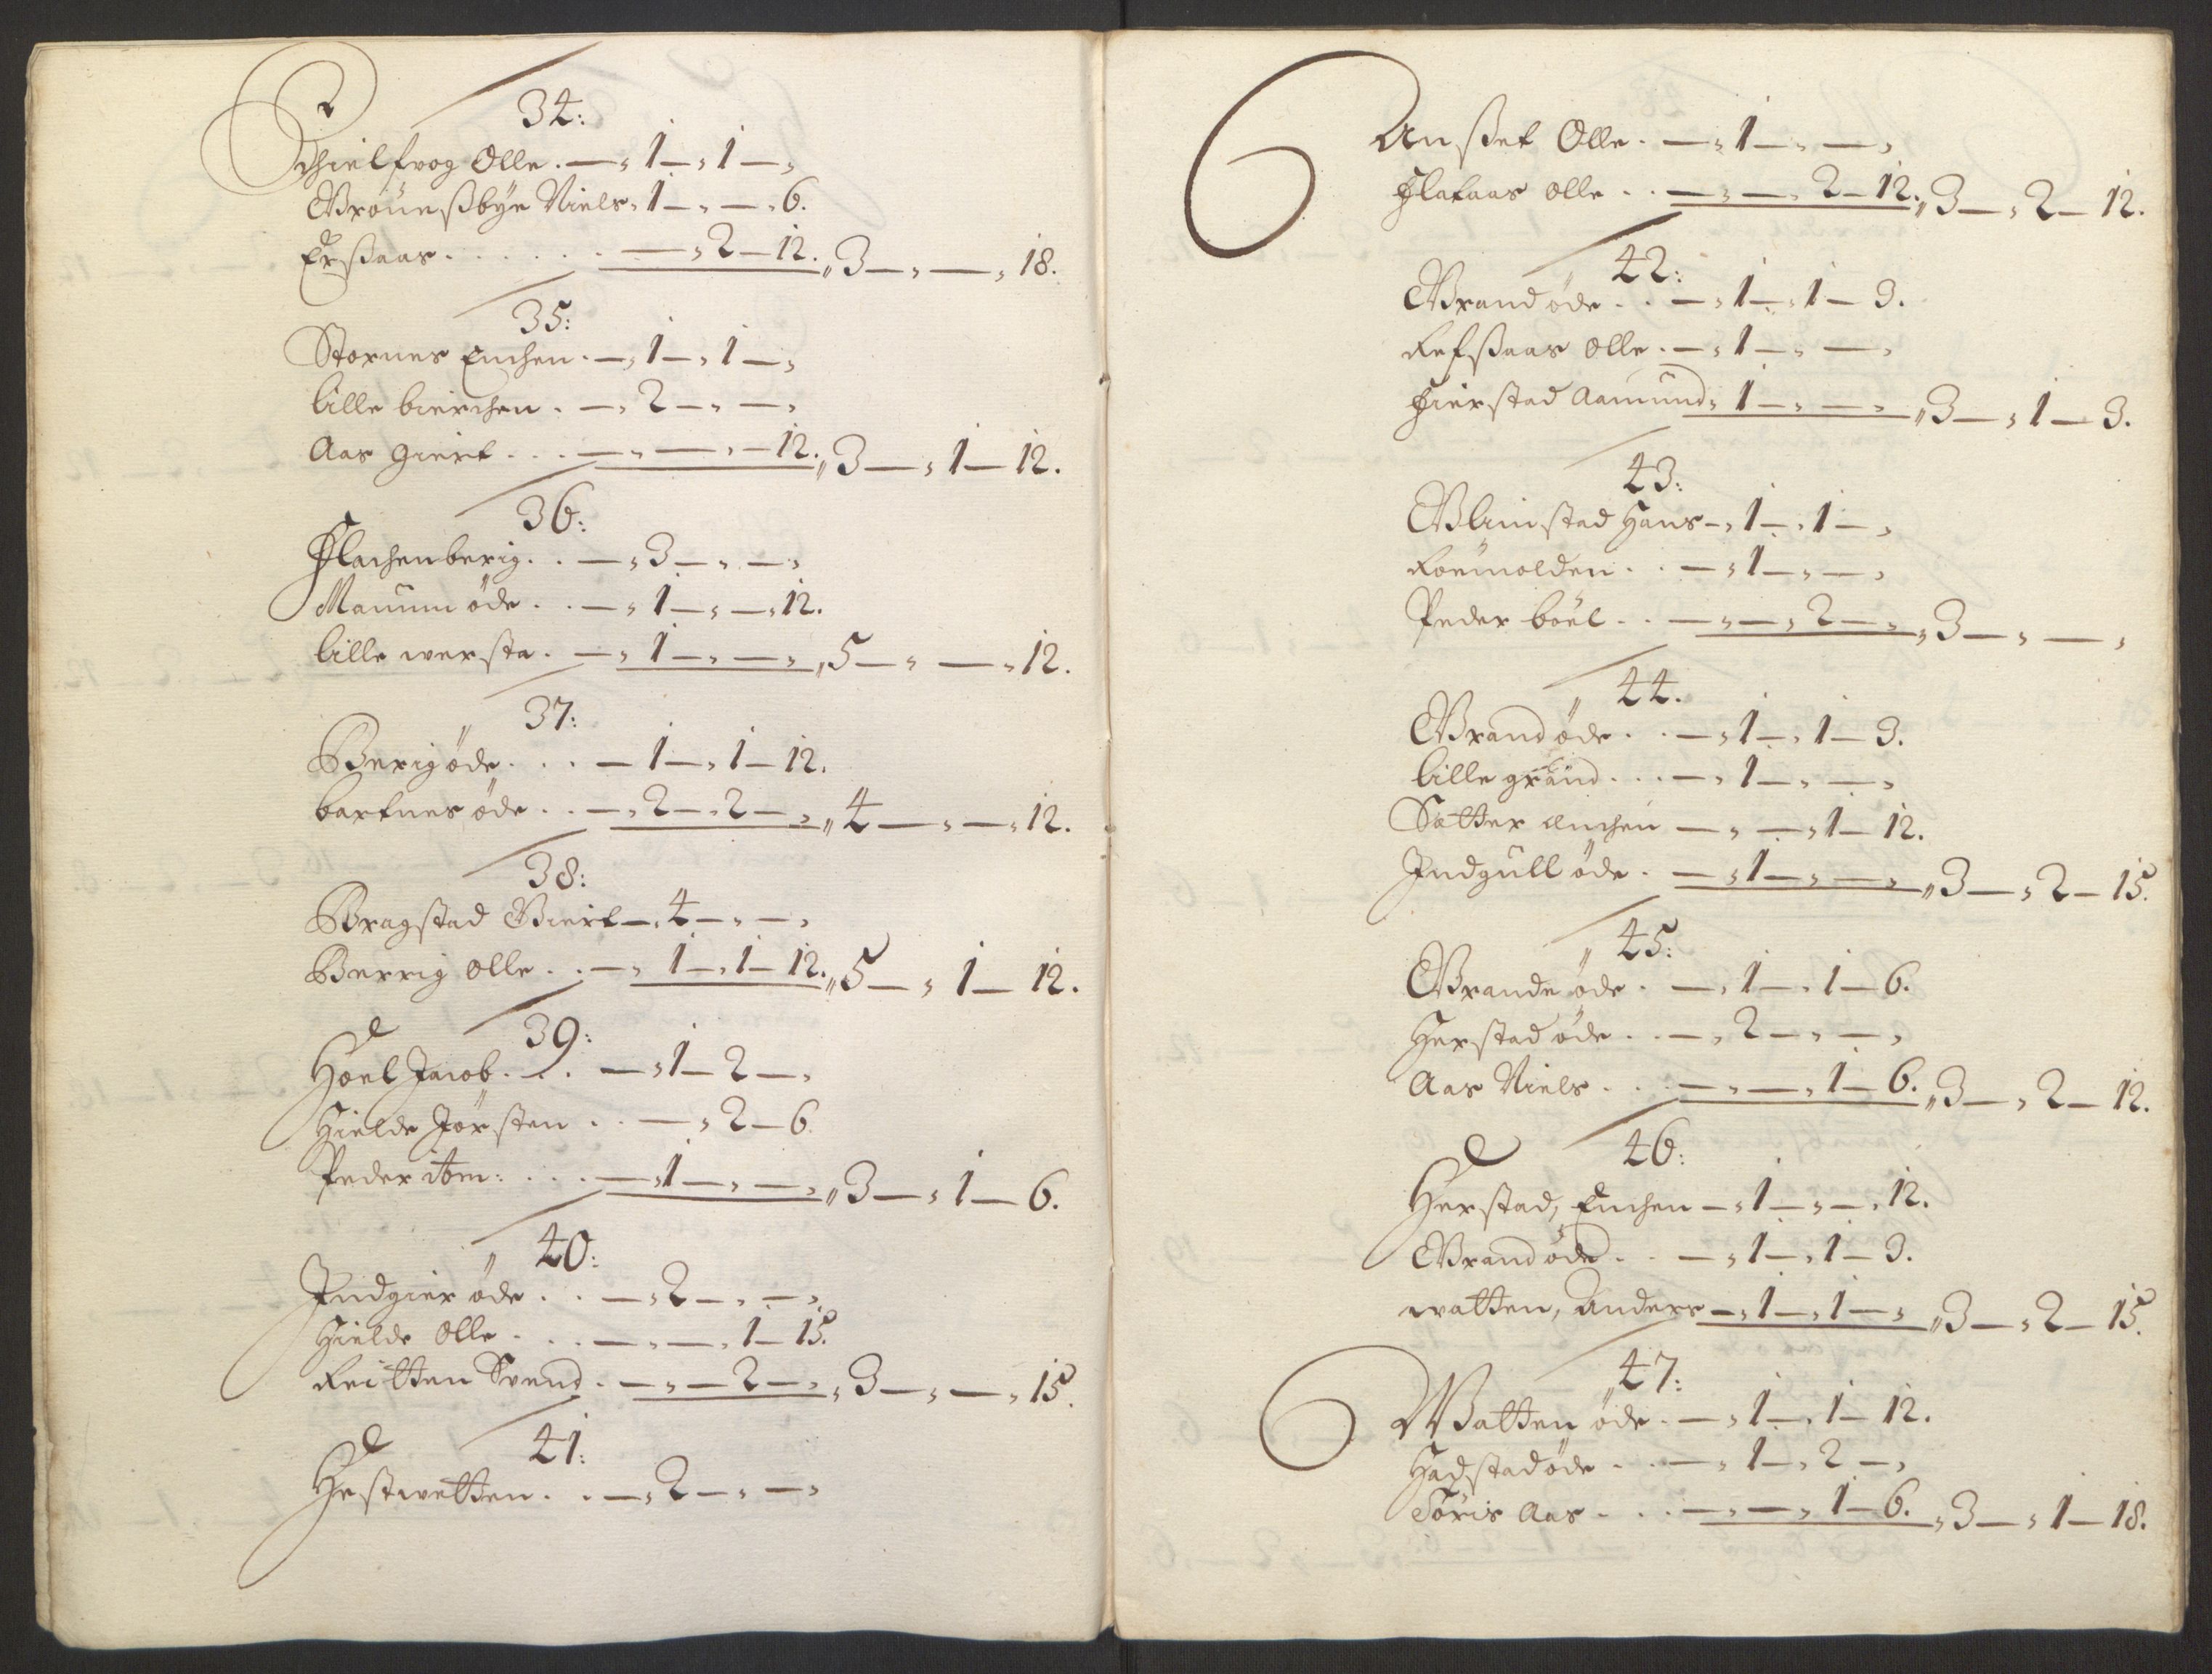 34:
Schielfrog Olle. — „ 1 — „ 1 — „
Grönnesßbye Niels „ 1 — „ — „ 6.
Erßaas . . . . . . — „ 2 — 12. „ 3 — „ — „ 18.
35:
Stornes Enchen. — „ 1 — „ 1 — „
Lille bierchen. — „ 2 — „ — „
Aas Giert . . . — „ — „ — 12. „ 3 — „ 1 — 12.
36:
Flachenberig. . — „ 3 — „ — „
Manum öde. . — „ 1 — „ — „ 12.
Lille wersta. — „ 1 — „ — „ „ 5 — „ — „ 12.
37:
Berig öde. . . — 1 — „ 1 — 12.
bartnes öde. . — „ 2 — „ 2 — „ „ 4 — „ — „ 12.
38:
Bragstad Giert — „ 4 — „ — „
Berrig Olle. . — „ 1 — „ 1 — 12. „ 5 — „ 1 — 12.
39:
Hoel Jacob. . . — „ 1 — 2 — „
Hielde Jörsten . . — „ 2 — 6
Peder ibm: . . . — „ 1 — „ — „ „ 3 — „ 1 — 6.
40:
Indgier öde. . — „ 2 — „ — „
Hielde Olle. . . — „ — „ 1 — 15.
Reitten Svend. — „ — 2 — „ „ 3 — „ — „ 15.
41:
Hestvetten. . — „ 2 — „ — „
Anßet Olle. — „ 1 — „ — „
Flataas Olle . . — „ — „ 2 — 12. „ 3 — „ 2 — 12.
42:
Grand öde. . — „ 1 — „ 1 — 3.
Refßaas Olle. — „ 1 — „ — „
Fierstad Aamund „ 1 — „ — „ „ 3 — „ 1 — 3.
43:
Glimstad Hans — „ 1 — „ 1 — „
Roëmolden. . — „ 1 — „ — „
Peder boël. . — „ — „ 2 — „ „ 3 — „ — „
44.
Grand öde. . — „ 1 — „ 1 — 3.
Lille grand. . . — „ 1 — „ — „
Sætter Enchen — „ — „ 1 — 12.
Indgull öde. — „ 1 — „ — „ „ 3 — „ 2 — 15.
45:
Grande öde. — „ 1 — „ 1 — 6.
Herstad öde. . — „ 2 — „ — „
Aas Niels. . . — „ — „ 1 — 6. „ 3 — „ 2 — 12.
46:
Herstad, Enchen — „ 1 — „ — „ 12.
Grand öde. . — „ 1 — „ 1 — 3.
watten, Anders — „ 1 — „ 1 — „ „ 3 — „ 2 — 15.
47:
Watten öde. — „ 1 — „ 1 — 12.
Hadstad öde. . — „ 1 — „ 2 — „
Töris Aas. . . — „ — „ 1 — 6. „ 3 — „ 1 — 18.